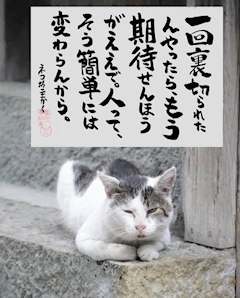 一回裏切られた
んやったら、もう
期待せんほう
がええで。人って、
そう簡単には
変わらんから。